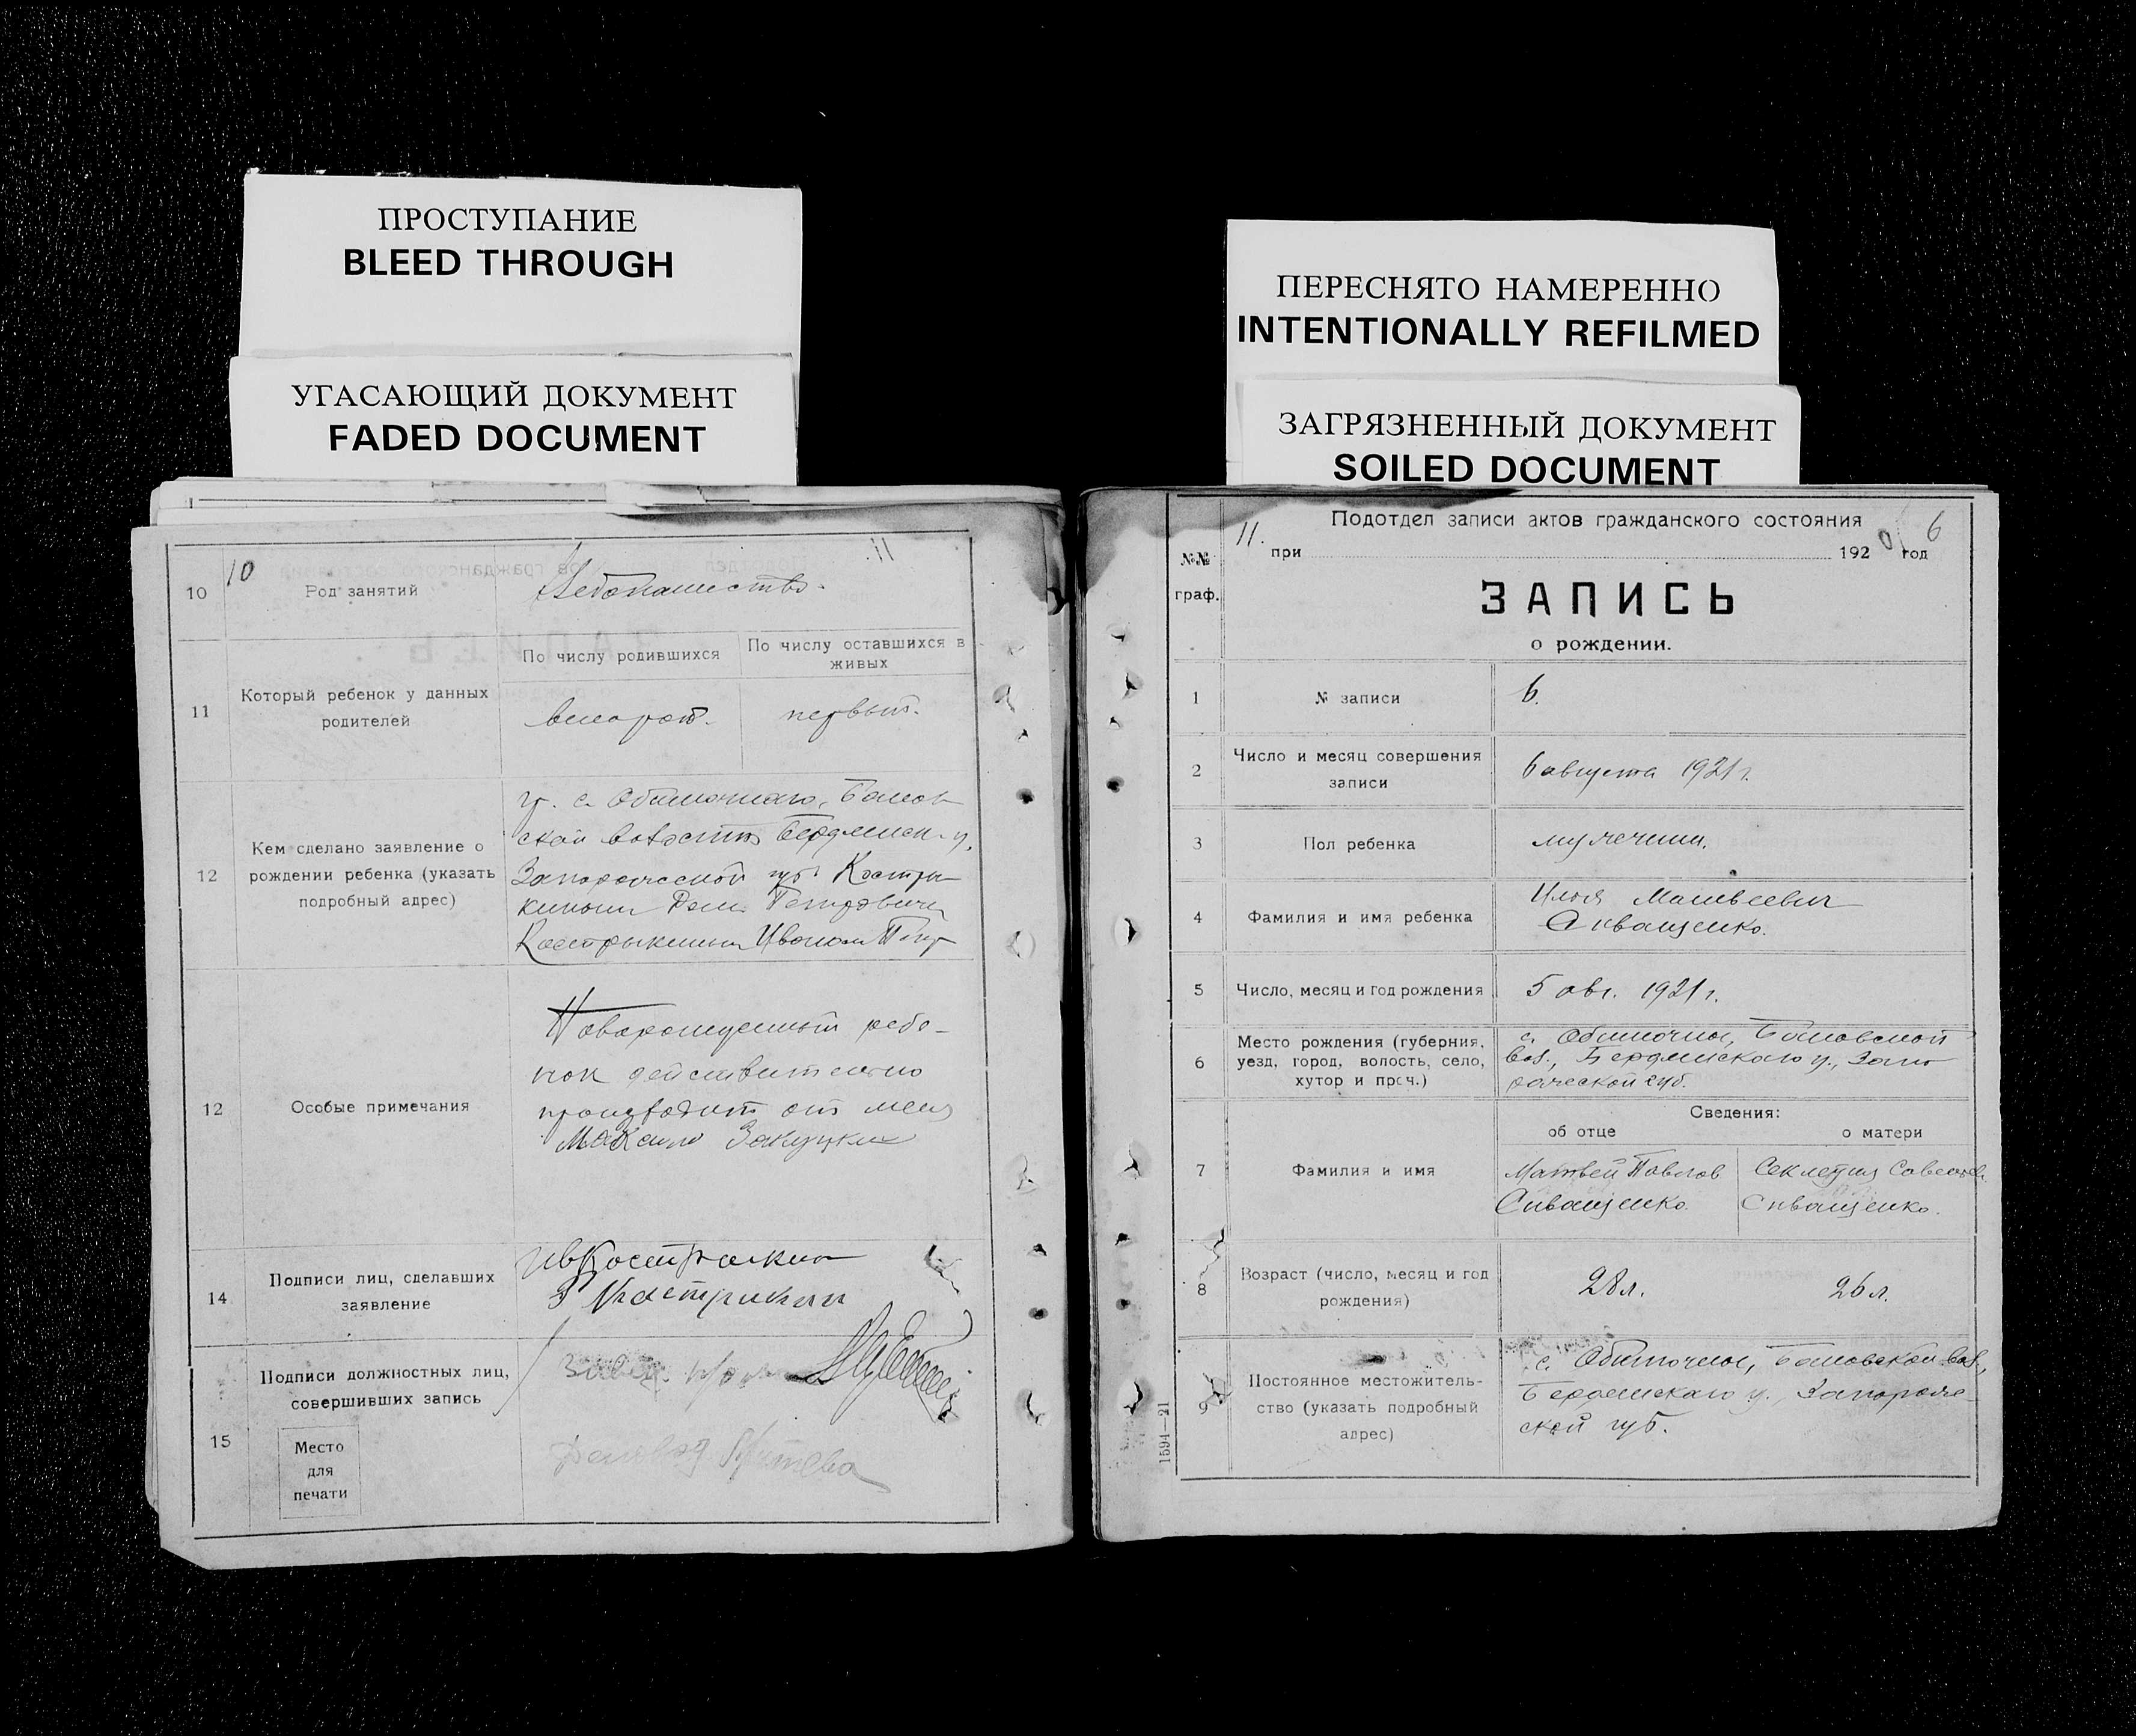 ПРОСТУПАНИЕ
BLEED THROUGH
УГАСАЮЩИЙ ДОКУМЕНТ
FADED DOCUMENT
ПЕРЕСНЯТО НАМЕРЕННО
INTENTIONALLY REFILMED
ЗАГРЯЗНЕННЫЙ ДОКУМЕНТ
SOILED DOCUMENT
10
11.
10
Род занятий
Хлебопашество.
По числу родившихся
По числу оставшихся в
живых
11
Который ребенок у данных
родителей
второй.
первый.
12
Кем сделано заявление о
рождении ребенка (указать
подробный адрес)
гр. с. Обиточного,
ской волости Бердянск. у.
Запорожской губ. Костры
киным Петровичем
Кострыкиным Иваном Петр
12
Особые примечания
Новорожденный ребе-
нок действительно
от меня
14
Подписи лиц, сделавших
заявление
Ив Кострыкин
15
Подписи должностных лиц,
совершивших запись
Место
для
печати
11.
6
№№
граф.
Подотдел записи актов гражданского состояния
при 192 год
ЗАПИСЬ
о рождении.
1
№ записи
6.
2
Число и месяц совершения
записи
6 августа 1921 г.
3
Пол ребенка
4
Фамилия и имя ребенка
Илья Матвеевич
Сиващенко.
5
Число, месяц и год рождения
5 авг. 1921 г.
6
Место рождения (губерния,
уезд, город, волость, село,
хутор и проч.)
с. Обиточное,
вол., Бердянского у., Запо
рожской губ.
Сведения:
об отце
о матери
7
Фамилия и имя
Матвей Павлов
Сиващенко.
Секлетия
Сиващенко.
8
Возраст (число, месяц и год
рождения)
28 л.
26 л.
9
Постоянное местожитель-
ство (указать подробный
адрес)
с. Обиточное, вол.,
Бердянского у., Запорож-
ской губ.
1594—21